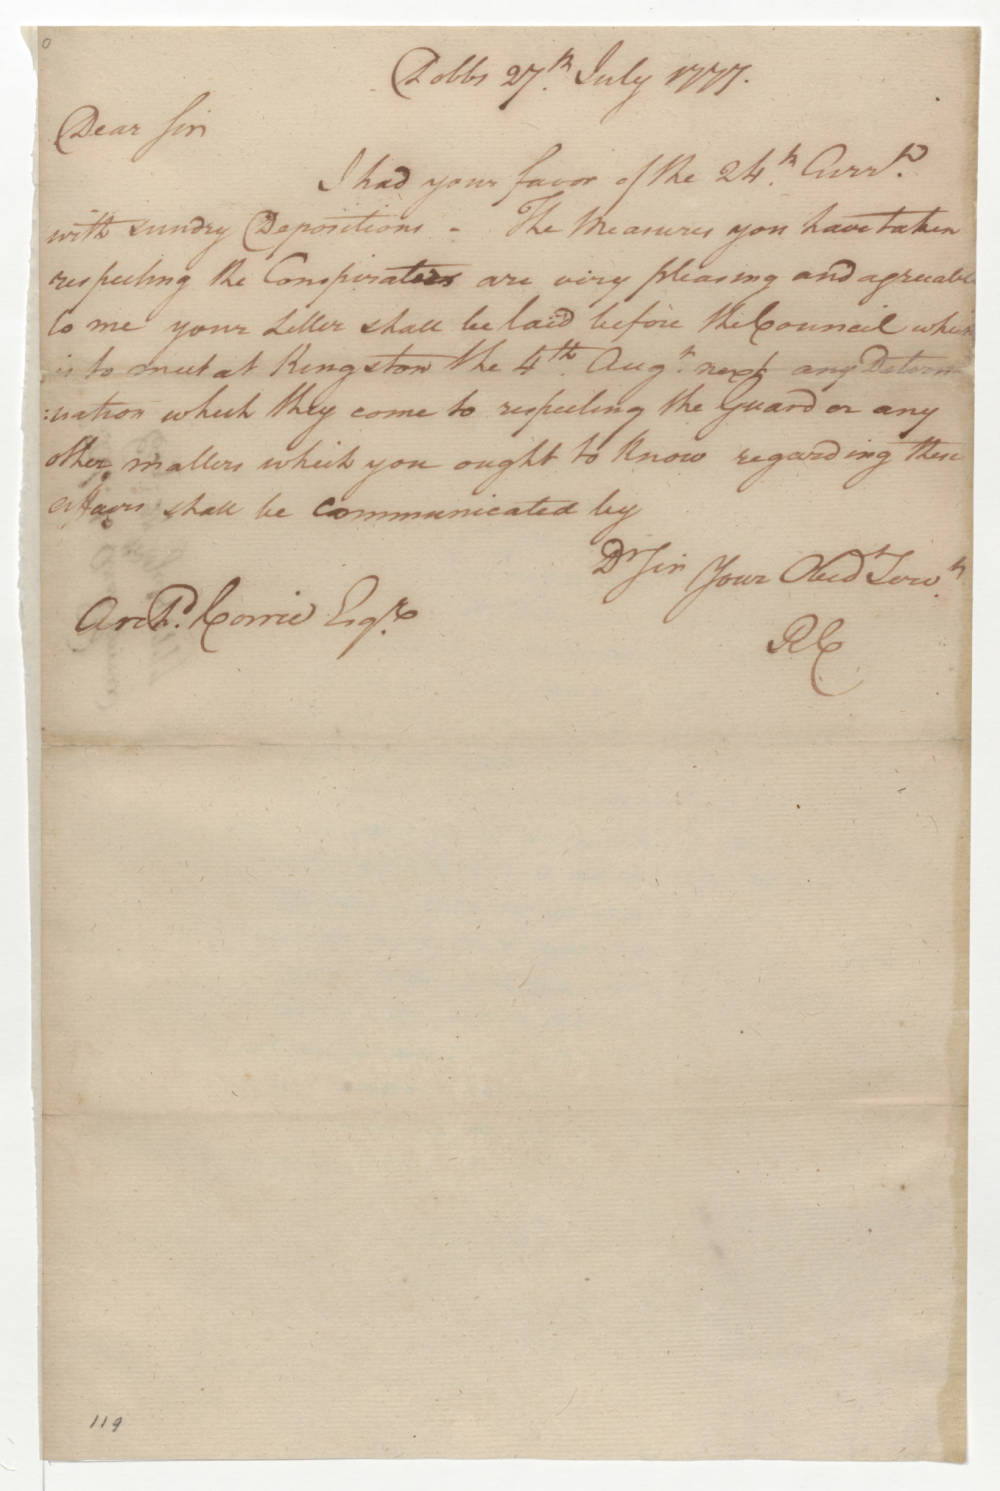 Dobbs 27th. July 1777.
Dear Sir
I had your favor of the 24th. Currt.
with sundry Depositions - The Measures you have taken
respecting the Conspirators are very pleasing and agreeable
to me your Letter shall be laid before the Council which
is to meet at Kingston the 4th. Augt. next any Determi
:nation which they come to respecting the Guard or any
other matters which you ought to know regarding these
affairs shall be communicated by
Dr Sir Your Obedt Servt.
Archd. Corrie Esqr.
RC
119